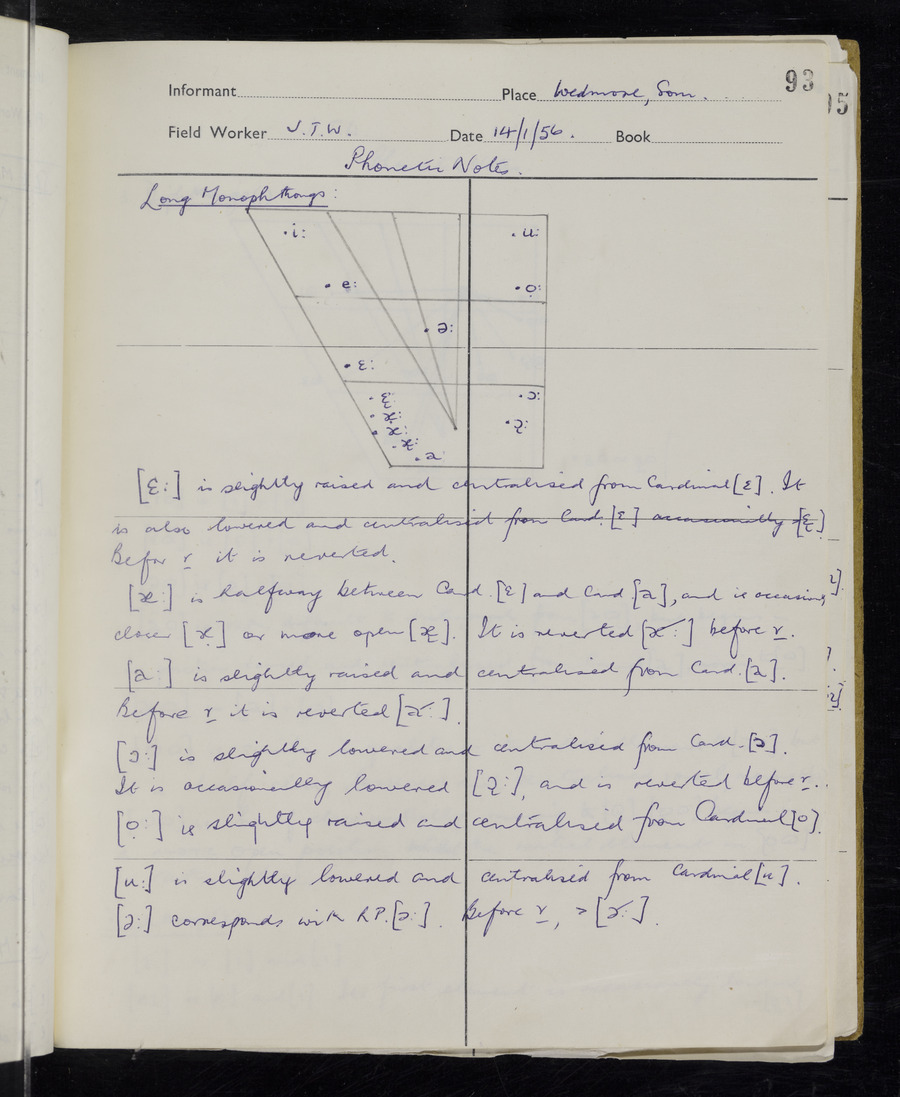 93
Informant Place Wedmore, Som.
15
Field Worker J.T.W. Date 14/1/56. Book
Phonetic Notes.
Long Monophthongs:
i: u:
e: o̞:
ə:
ɛ:
ɛ̞: ɔ:
æ̝:
æ: ɔ̞:
æ̞:
a:
[ɛ:] is slightly raised and centralised from Cardinal [ɛ]. It
is also lowered and centralised from Card. [ɛ] occasionally >[ɛ̞]
Before r it is reverted.
[æ:] is halfway between Card. [ɛ] and Card [a], and is occasion
closer [æ̝] or more open [æ̞]. It is reverted [æʴ:] before r.
[a:] is slightly raised and centralised from Card. [a].
Before r it is reverted [aʴ:].
[ɔ:] is slightly lowered and centralised from Card. [ɔ].
It is occasionally lowered [ɔ̞:], and is reverted before r..
[o̞:] is slightly raised and centralised from Cardinal [o].
[u:] is slightly lowered and centralised from Cardinal [u].
[ə:] corresponds with R.P. [ə:]. Before r, > [əʴ:].